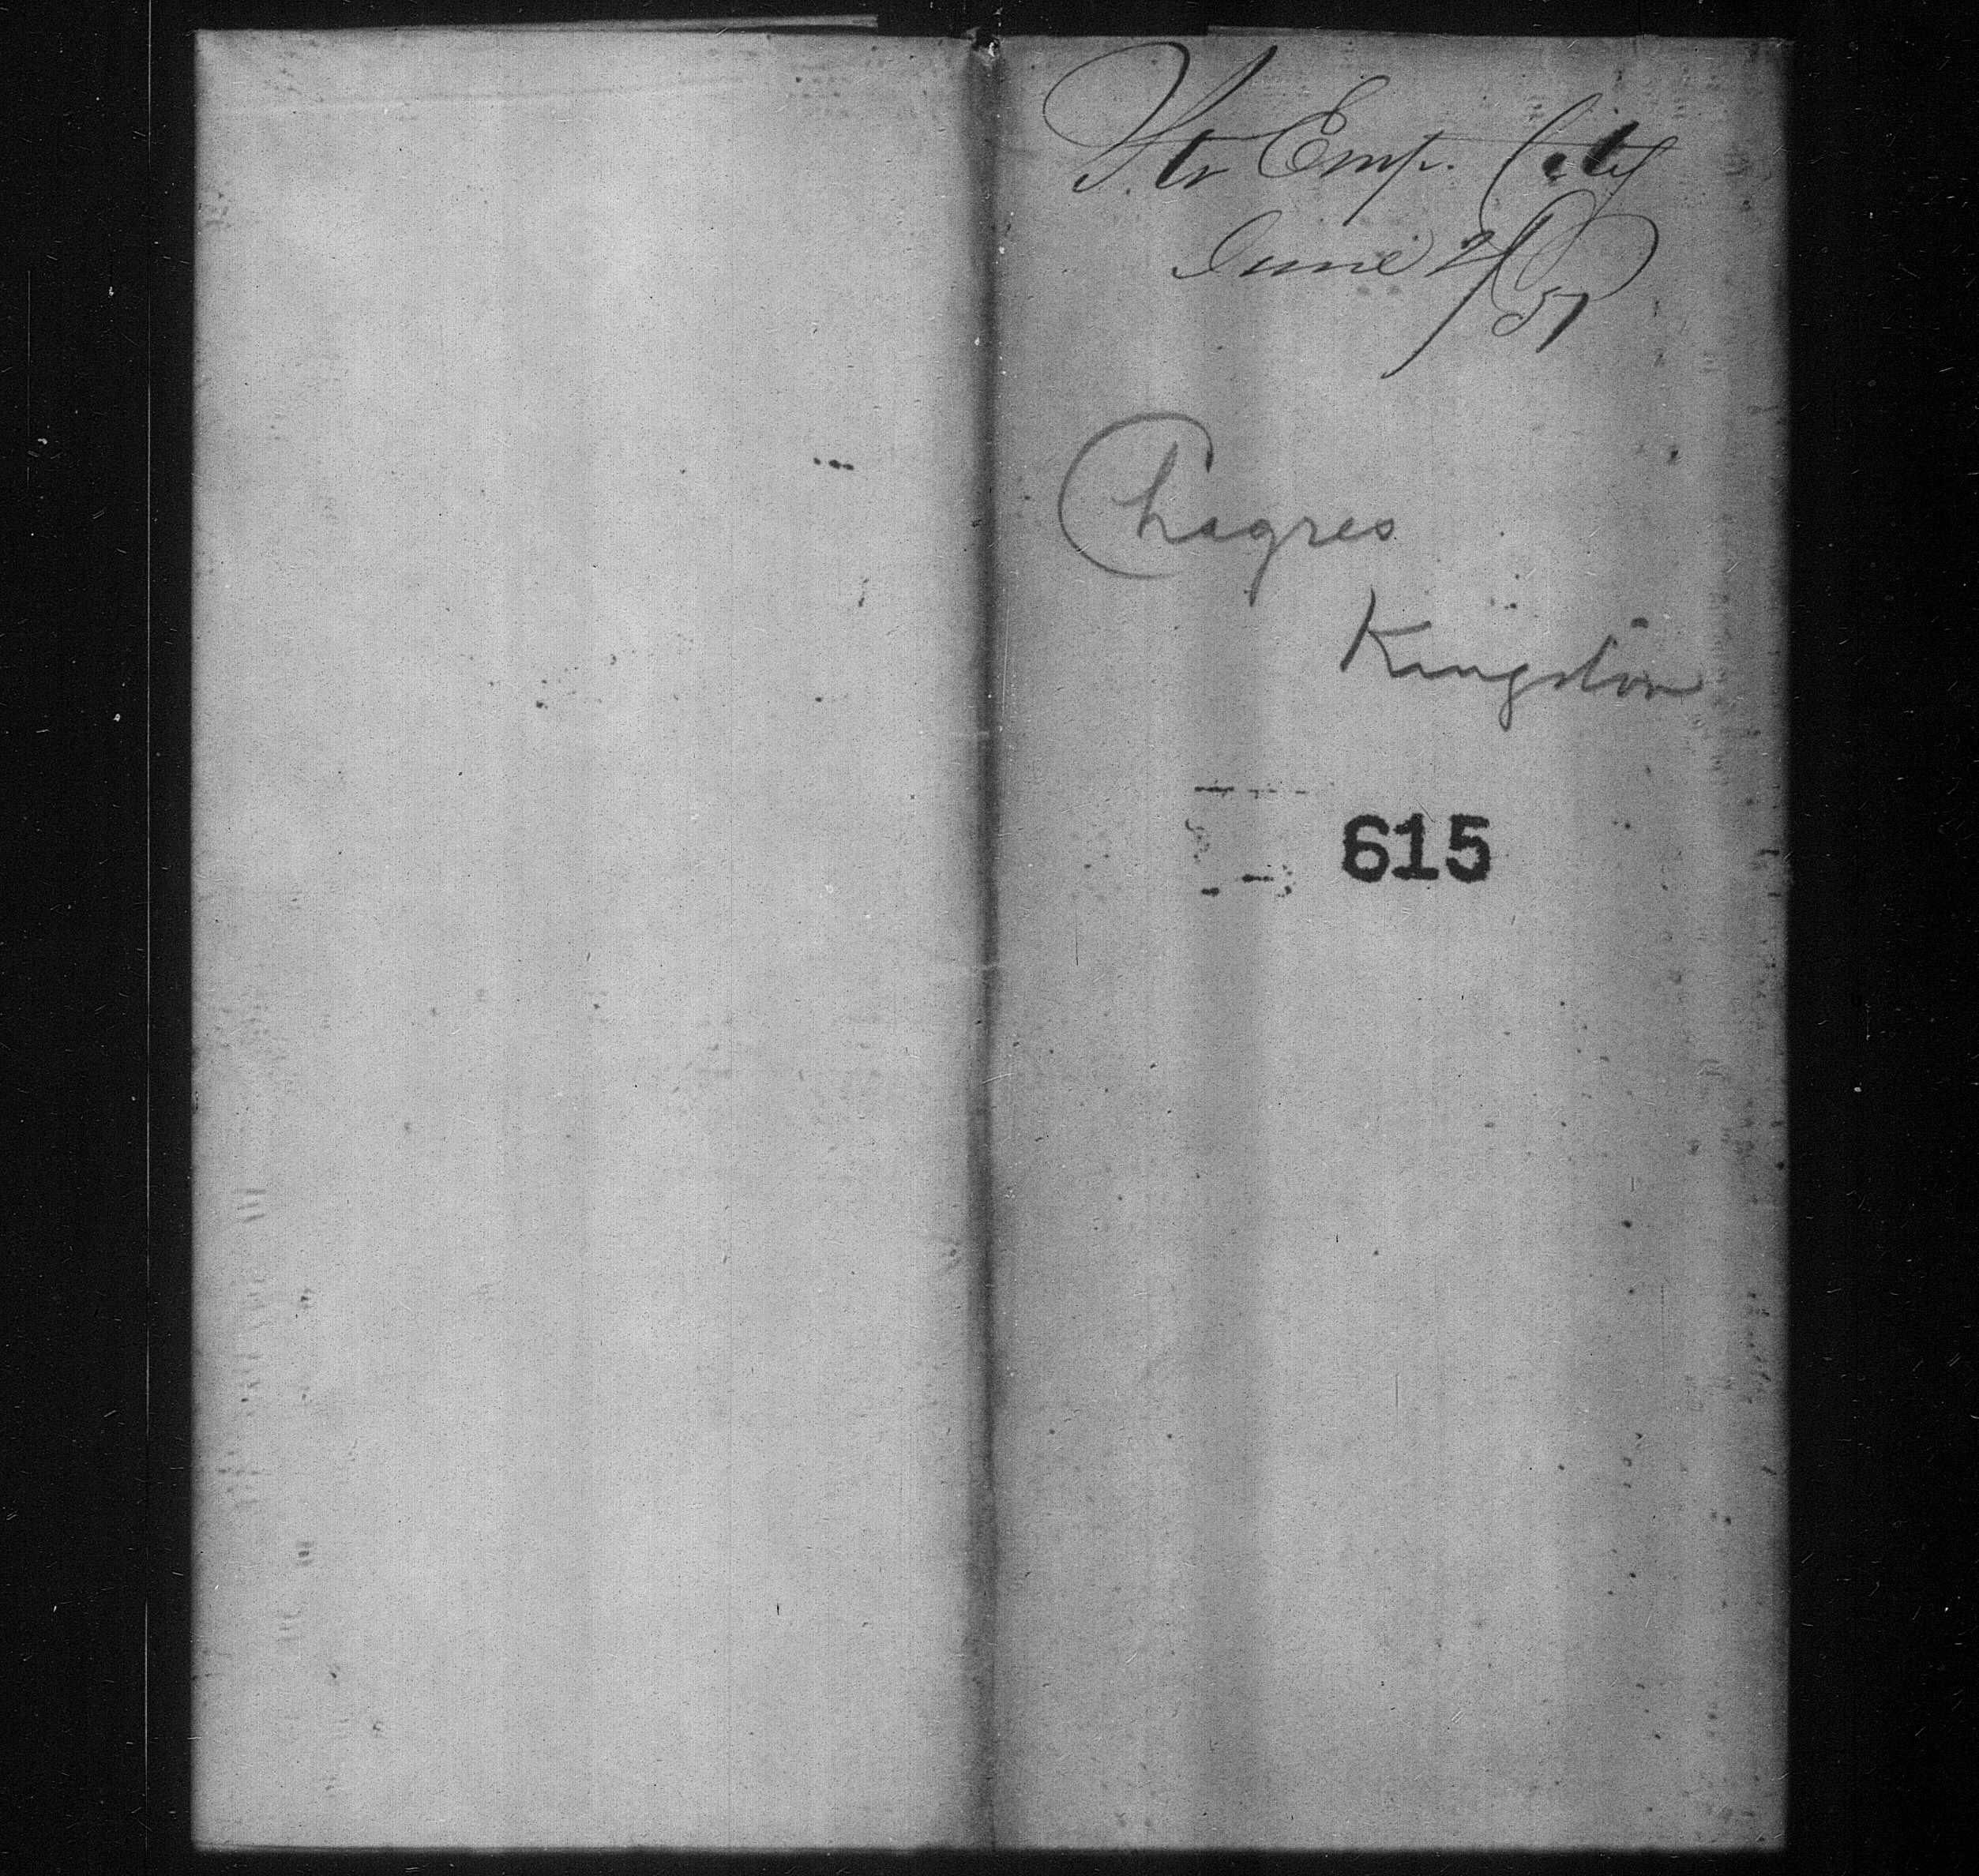 Str Emp. City
June 2/51
Chagres
Kingston
615